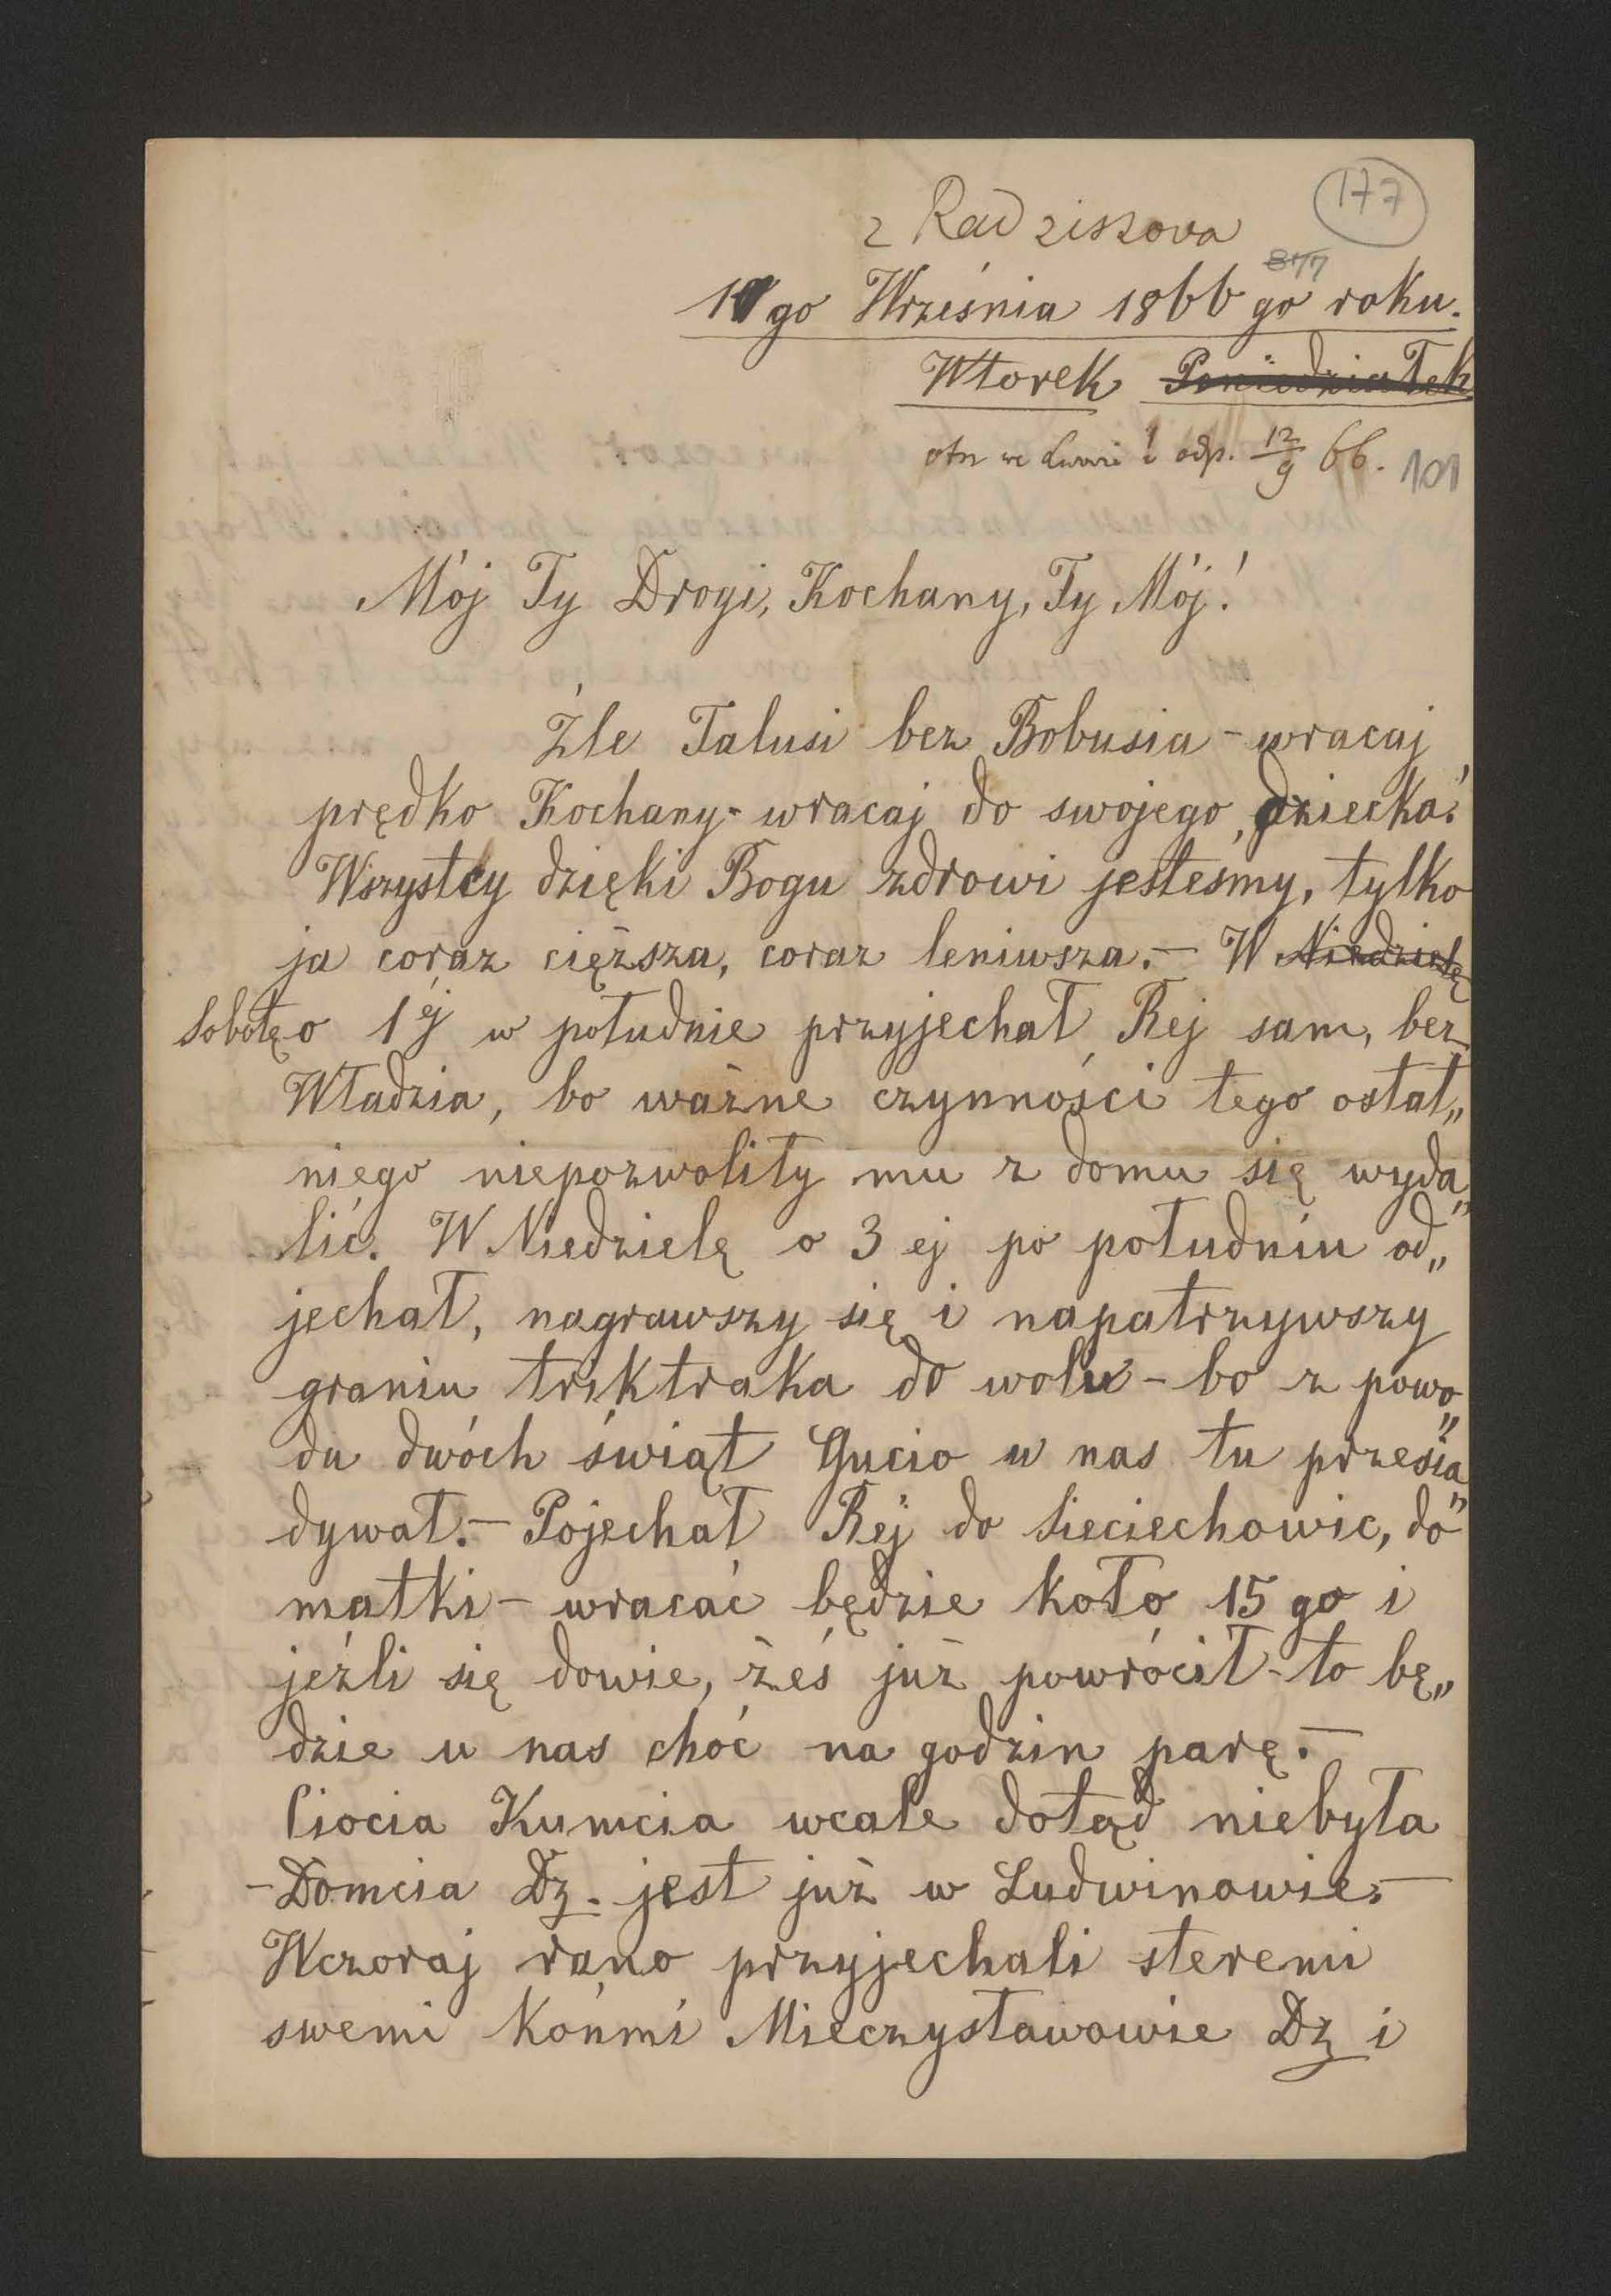 177
z Radziszowa
877
11go Września 1866 go roku.
Wtorek Poniedziałek
otr. we Lwowie i odp. 12/9 66. 101
Mój Ty Drogi, Kochany, Ty Mój!
Źle Talusi bez Bobusia - wracaj
prędko Kochany - wracaj do swojego, dziecka!
Wszystcy dzięki Bogu zdrowi jesteśmy, tylko
ja coraz cięższa, coraz leniwsza. - W Niedzielę
Sobotę o 1éj w południe przyjechał Rej sam, bez
Władzia, bo ważne czynności tego ostat„
niego niepozwoliły mu z domu się wyda„
lić. W Niedzielę o 3 ej po południu od„
jechał, nagrawszy się i napatrzywszy
graniu triktraka do woli - bo z powo„
du dwóch świąt Gucio u nas tu przesia„
dywał. - Pojechał Rej do Sieciechowic, do
matki - wracać będzie koło 15 go i
jeźli się dowie, żeś już powrócił - to bę„
dzie u nas choć na godzin parę. -
Ciocia Kumcia wcale dotąd niebyła
- Domcia Dz. jest już w Ludwinowie. -
Wczoraj rano przyjechali steremi
swemi końmi Mieczysławowie Dz i